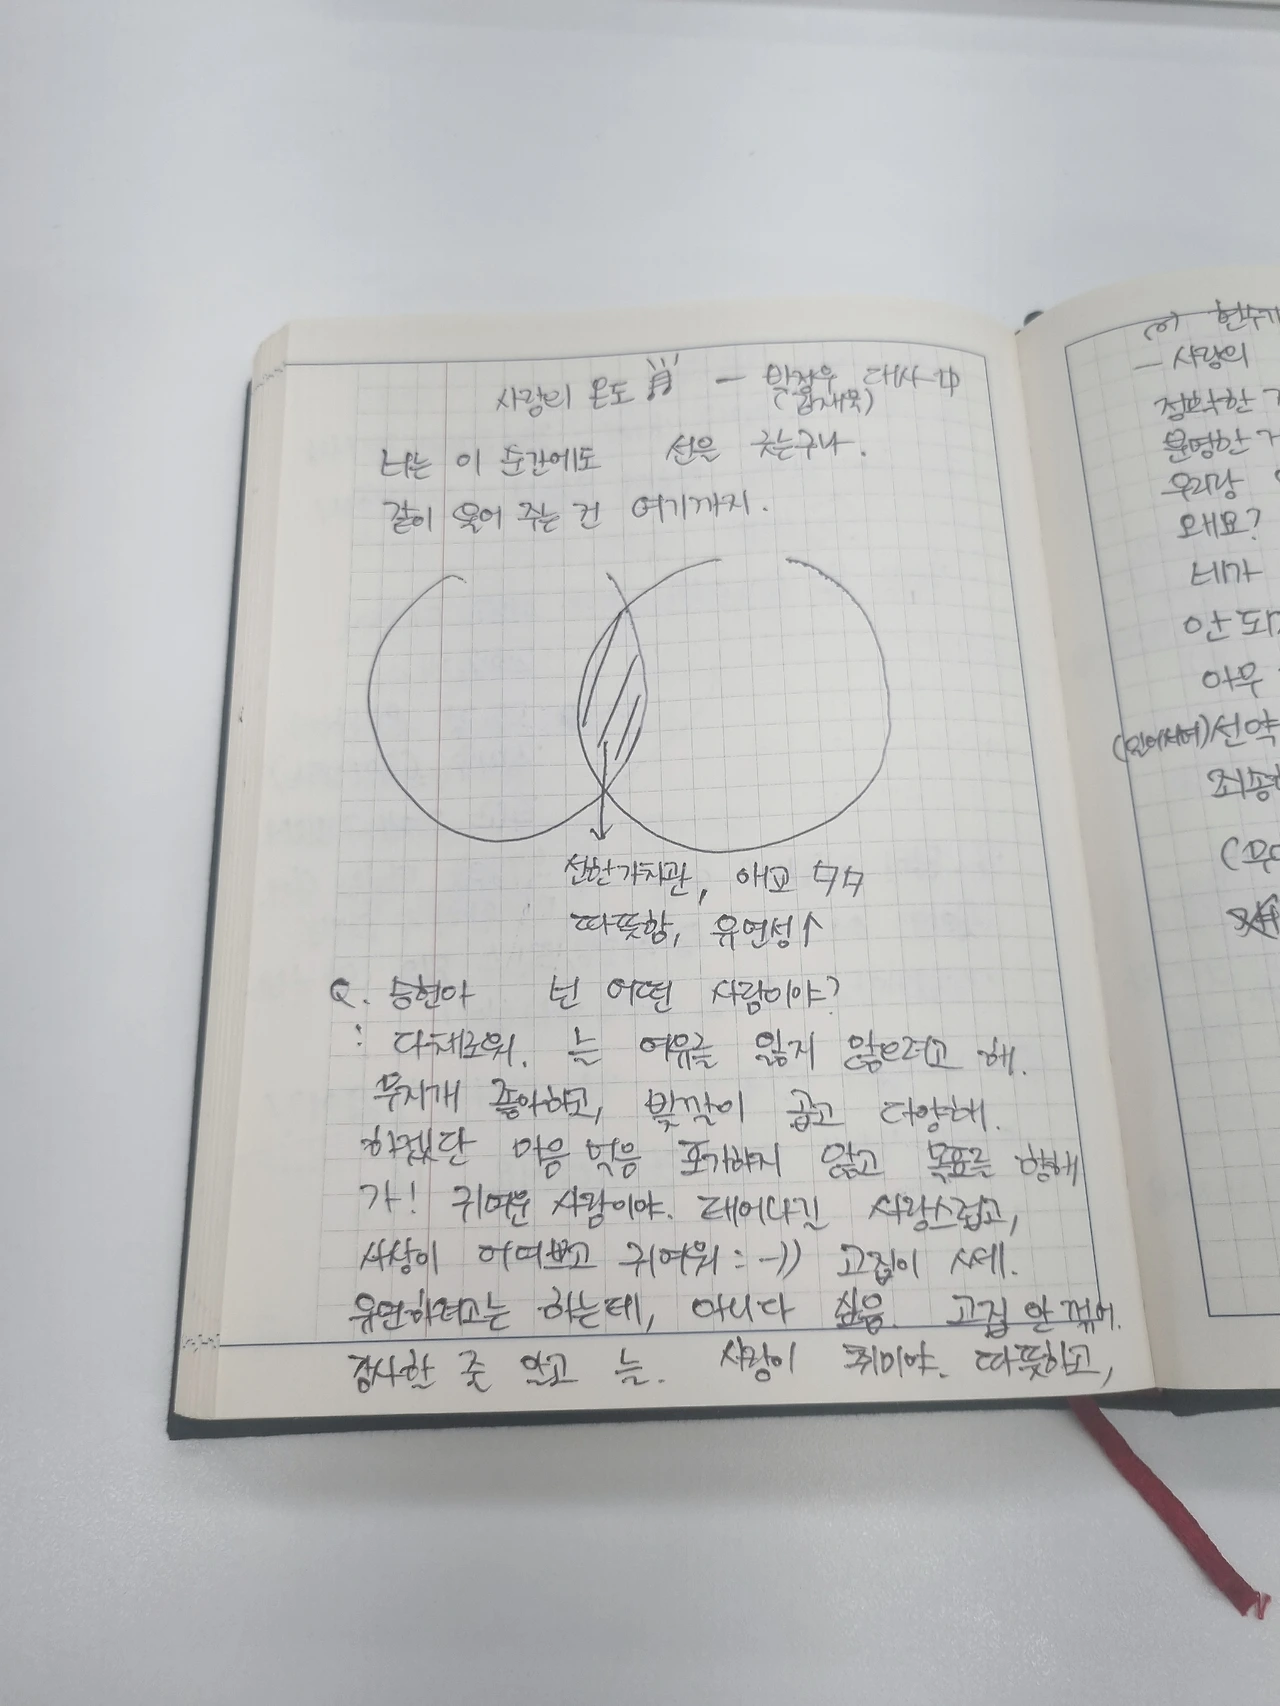 사랑의 온도 — 박정우 대사 中
너는 이 순간에도 선을 긋는구나.
같이 울어 주는 건 여기까지.
선한가치관, 애교 ㅋㅋ
따뜻함, 유연성↑
Q. 승현아 넌 어떤 사람이야?
: 다채로워. 늘 여유를 잃지 않으려고 해.
무지개 좋아하고, 빛깔이 곱고 다양해.
하겠단 마음 먹음 포기하지 않고 목표를 향해
가! 귀여운 사람이야. 태어나길 사랑스럽고,
사상이 어여쁘고 귀여워 : -)) 고집이 세.
유연하려고는 하는데, 아니다 싶음. 고집 안 꺾어.
감사할 줄 알고 늘. 사랑이 취미야. 따뜻하고,
(이) 현수가
— 사랑의
정확한
분명한
우리랑
왜요?
네가
안 되
아무
선약
죄송